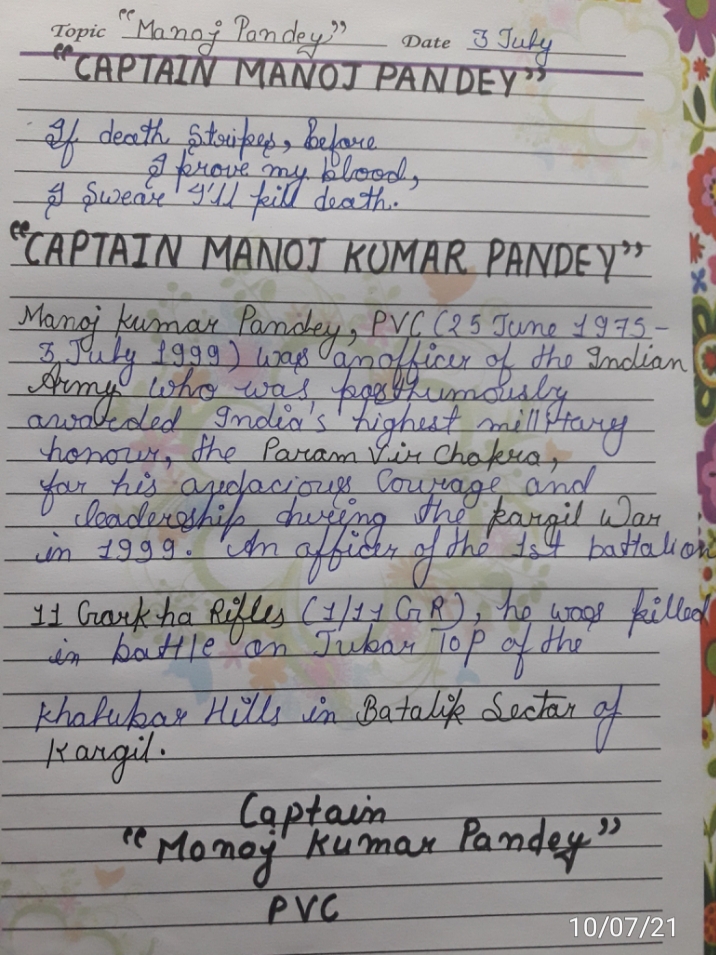 Topic "Manoj Pandey" Date 3 July
"CAPTAIN MANOJ PANDEY"
If death Stripes, Before
I prove my blood,
I Swear I'll kill death.
"CAPTAIN MANOJ KUMAR PANDEY"
Manoj kumar Pandey, PVC (25 June 1975-
3 July 1999) was anofficer of the Indian
Army who was posthumously
awarded India's highest millitary
honour, the Param Vir Chakra,
for his audacious Courage and
leadership during the kargil War
in 1999. An officer of the 1st battalion
11 Gorkha Rifles (1/11 GR), he was killed
in battle on Jubar Top of the
Khalubar Hills in Batalik Sector of
Kargil.
Captain
"Monoj Kumar Pandey"
PVC
10/07/21